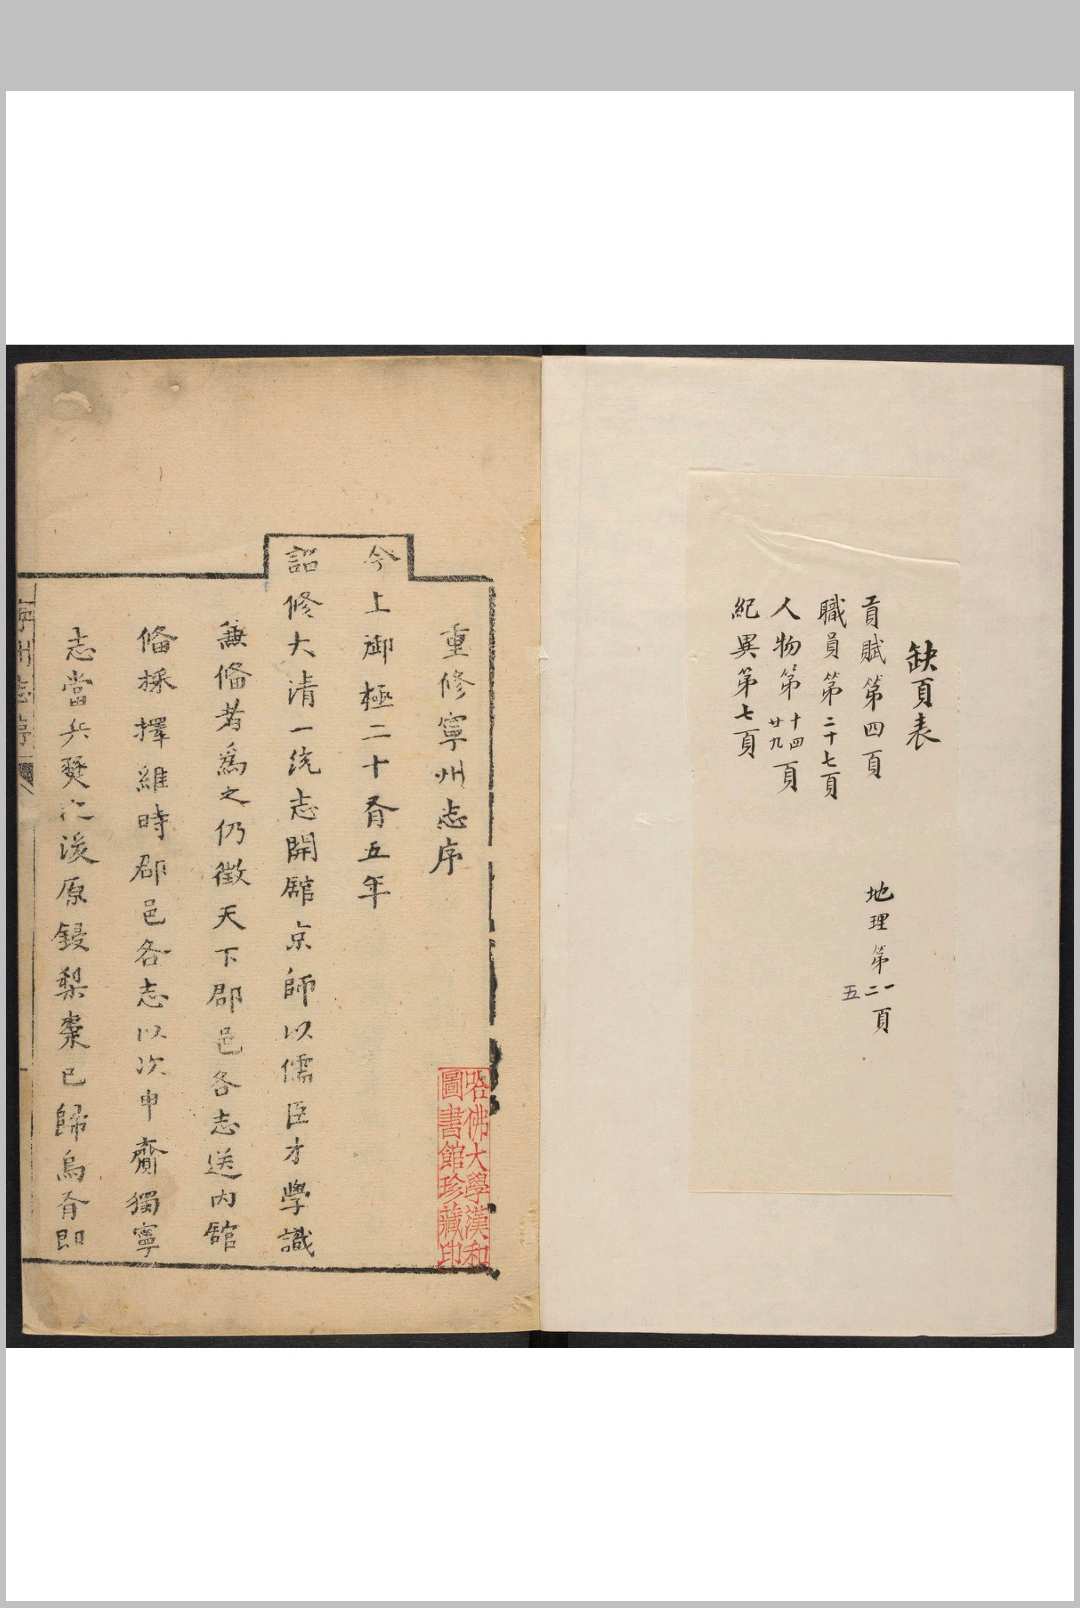 缺頁表
貢賦第四頁
職員第二十七頁
人物第十四廿九頁
紀異第七頁
地理第一二五頁
重修寧州志序
今上御極二十有五年
詔修大清一統志開舘京師以儒臣才學識
兼偹者爲之仍徵天下郡邑各志送內舘
偹採擇維時郡邑各志以次申齎獨寧
志當兵燹之後原鋟梨棗已歸烏有即
寧州志序
哈佛大學漢和
圖書館珍藏印